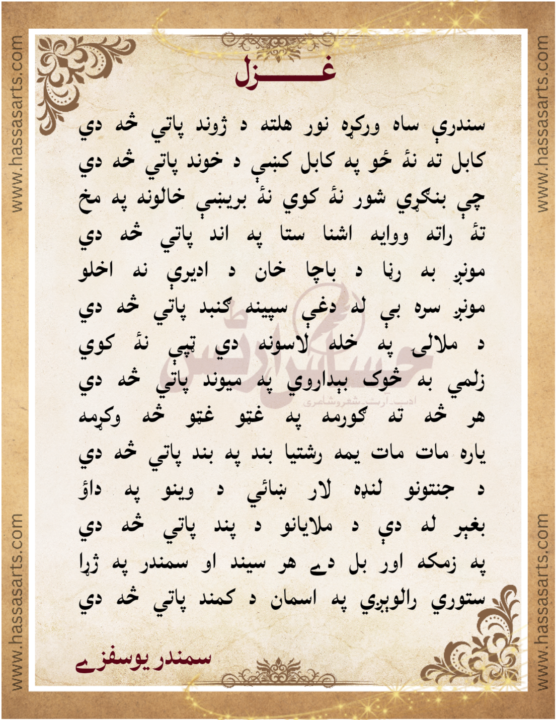 غــــــزل
سندرې ساه ورکړه نور هلته د ژوند پاتې څه دي
کابل ته نۀ ځو په کابل کښې د خوند پاتې څه دي
چې بنګړي شور نۀ کوي نۀ بريښي خالونه په مخ
تۀ راته ووايه اشنا ستا په اند پاتې څه دي
مونږ به رڼا د باچا خان د اديرې نه اخلو
مونږ سره بې له دغې سپينه ګنبد پاتې څه دي
د ملالۍ په خله لاسونه دي ټپې نۀ کوي
زلمي به څوک بېداروي په ميوند پاتې څه دي
هر څه ته ګورمه په غټو غټو څه وکړمه
ياره مات مات يمه رشتيا بند په بند پاتې څه دي
د جنتونو لنډه لار ښائي د وينو په داؤ
بغېر له دې د ملايانو د پند پاتې څه دي
په زمکه اور بل دے هر سيند او سمندر په ژړا
ستوري رالوېږي په اسمان د کمند پاتې څه دي
سمندر يوسفزے
حساس آرٹس
ادب۔آرٹ۔شعروشاعری
www.hassasarts.com
www.hassasarts.com
www.hassasarts.com
www.hassasarts.com